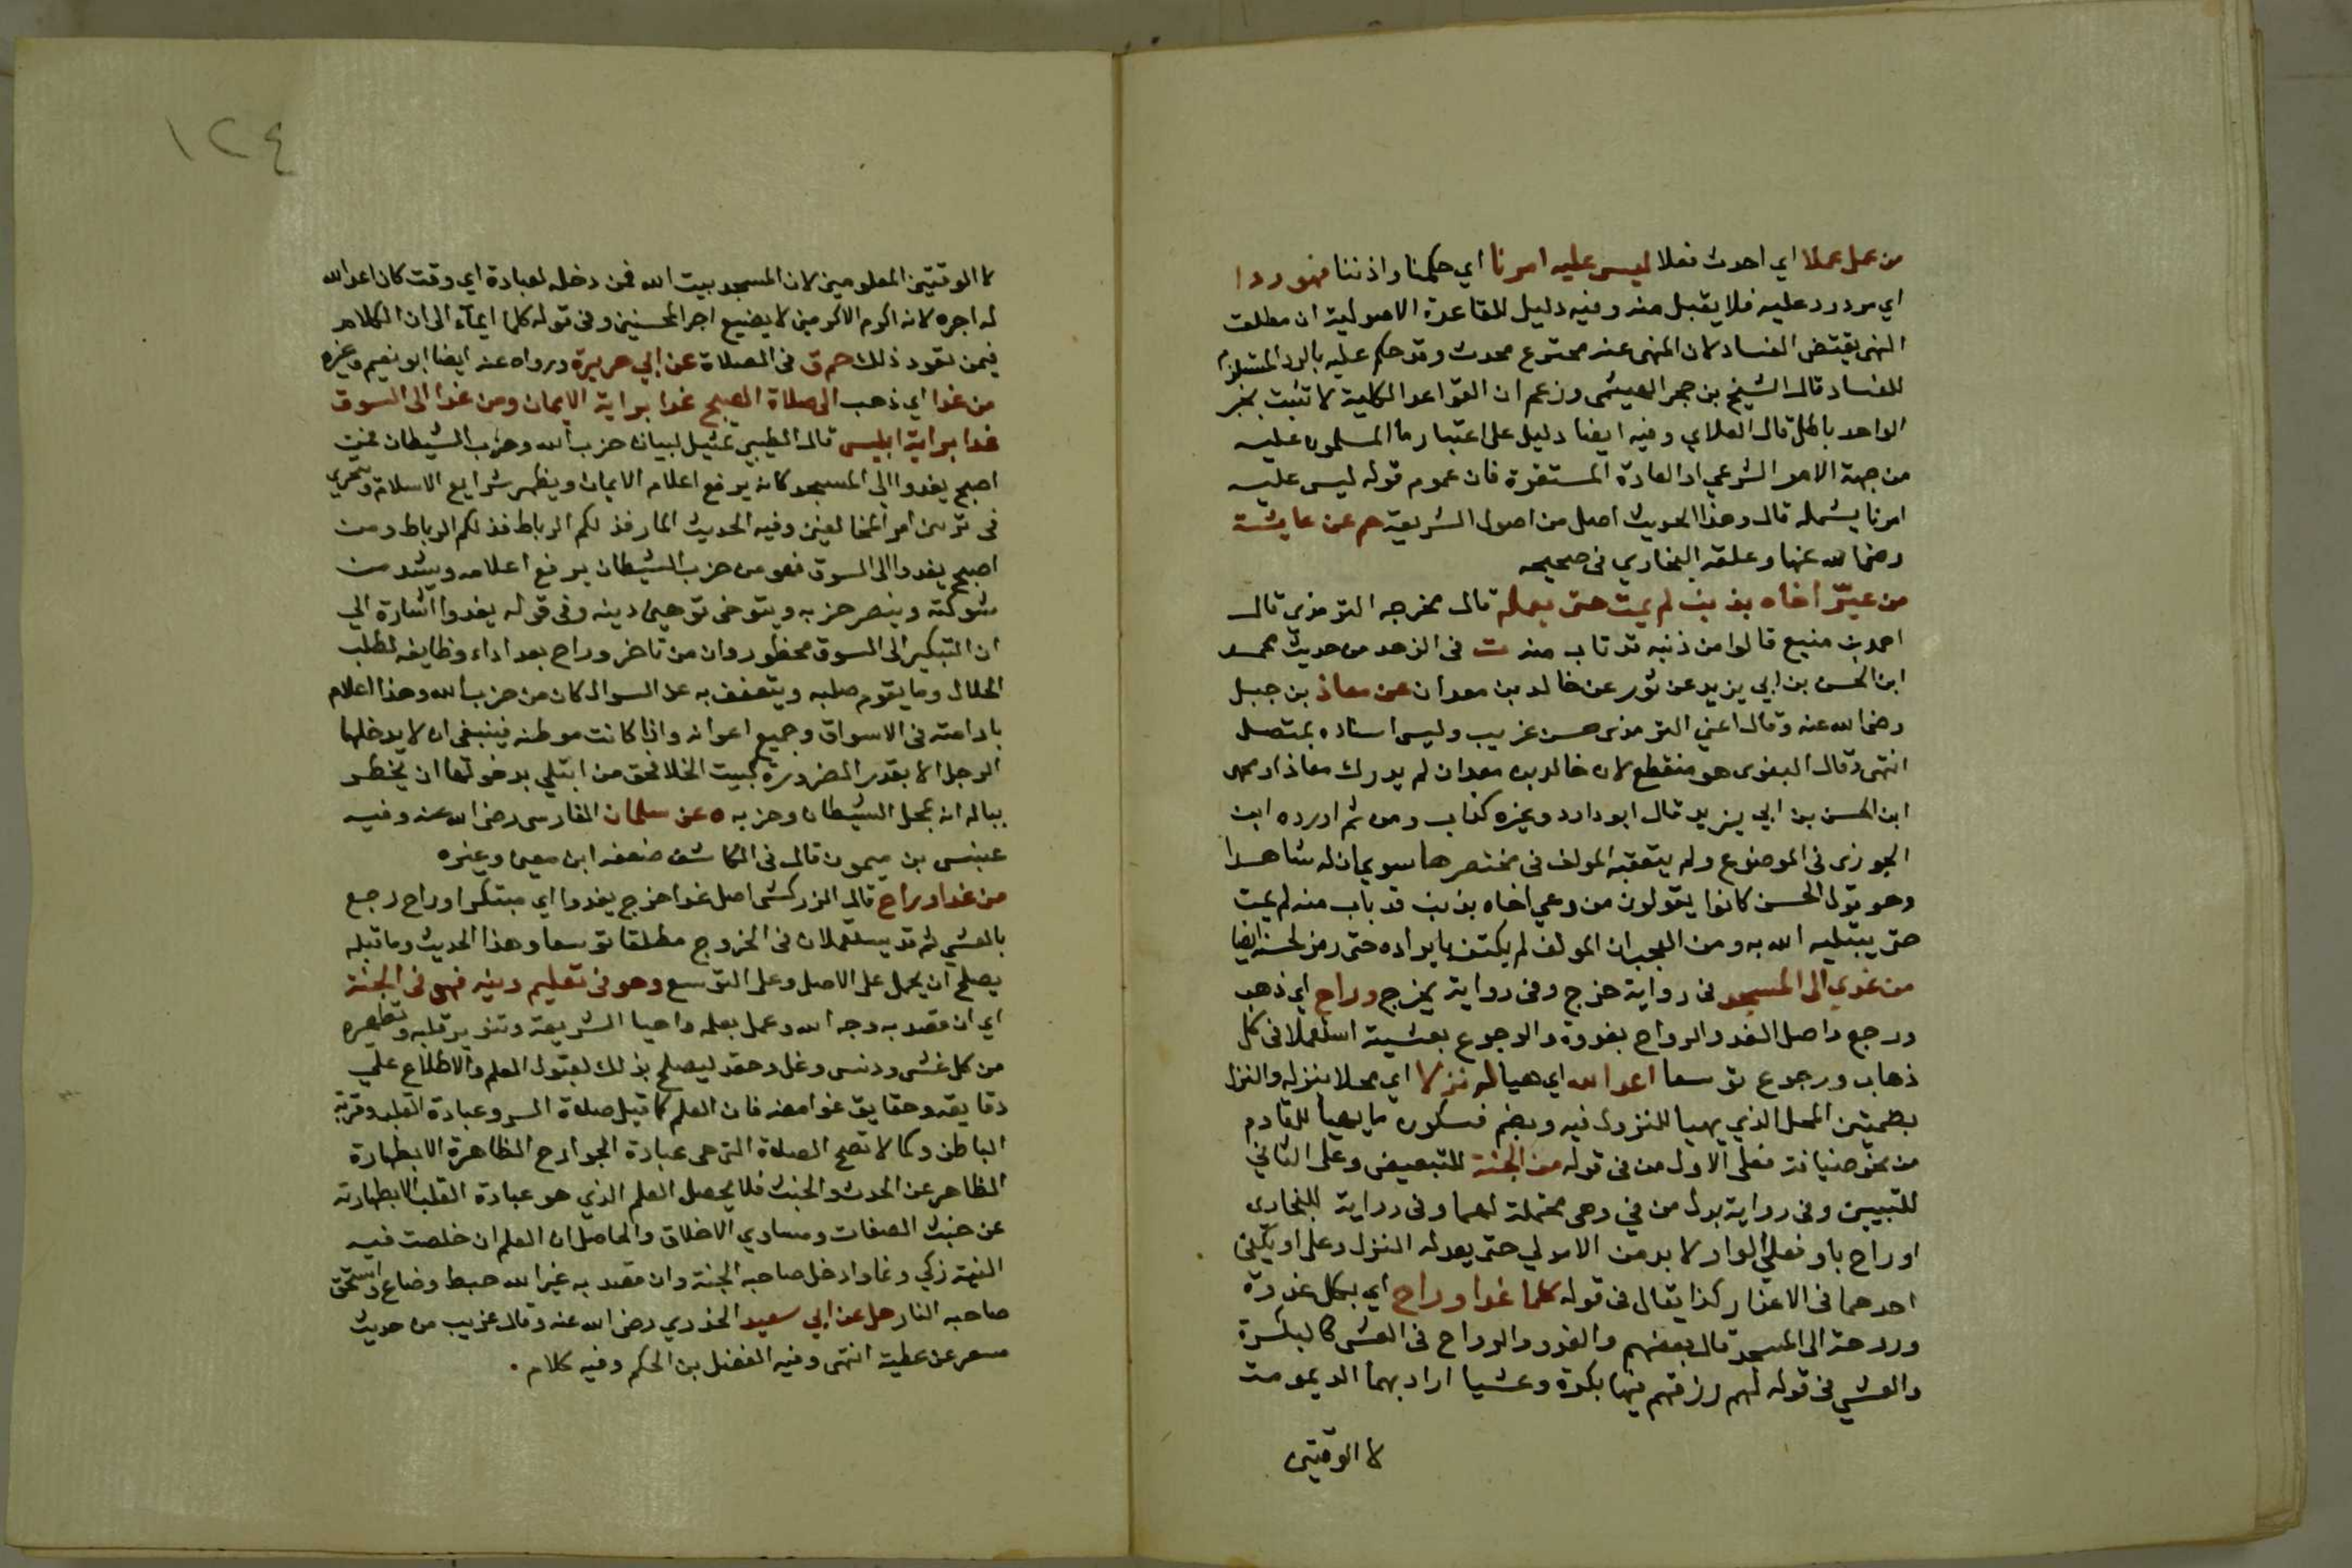 من عمل عملا اي احدث فعلا ليس عليه امرنا اي حكمنا واذننا فهو رد ا
اي مردود عليه فلا يقبل منه وفيه دليل للقاعدة الاصولية ان مطلق
النهي يقتض الفساد لان المنهى عنه مخترع محدث وقد حكم عليه بالرد المستلزم
للفساد قال الشيخ بن حجر الهيتمى وزعم ان القواعد الكلية لا تثبت بخبر
الواحد باطل قال العلاي وفيه ايضا دليل على اعتبار ما المسلمون عليه
من جهة الامر الشرعي او العادة المستقرة فان عموم قوله ليس عليه
امرنا يشمله قال وهذا الحديث اصل من اصول الشريعة حم عن عايشة
رضى الله عنها وعلقه البخاري فى صحيحه
من عيّر اخاه بذنب لم يمت حتى يعمله قال مخرجه الترمذى قال
احمد بن منيع قالوا من ذنبه قد تاب منه ت فى الزهد من حديث محمد
ابن الحسن بن ابي يزيد عن ثور عن خالد بن معدان عن معاذ بن جبل
رضى الله عنه وقال اعني الترمذى حسن غريب وليس اسناده بمتصل
انتهى وقال البغوى هو منقطع لان خالد بن معدان لم يدرك معاذا ومحمد
ابن الحسن بن ابي يزيد قال ابو داود وغيره كذاب ومن ثم اورده ابن
الجوزى فى الموضوع ولم يتعقبه المولف فى مختصرها سوى بان له شاهدا
وهو قول الحسن كانوا يقولون من رمي اخاه بذنب قد تاب منه لم يمت
حتى يبتليه الله به ومن العجب ان المولف لم يكتف بايراده حتى رمز لحسنه ايضا
من غدي الى المسجد فى رواية خرج وفى رواية يخرج وراح اي ذهب
ورجع واصل الغدو الرواح بغدوة والرجوع بعشية استعملا فى كل
ذهاب ورجوع توسعا اعد الله اي هيا له نزلا اي محلا ينزله والنزل
بضمتين المحل الذي يهيا للنزول فيه وبضم فسكون ما يهيأ للقادم
من نحو ضيافة فعلى الاول من فى قوله من الجنة للتبعيض وعلى الثاني
للتبيين وفى رواية بدل من في وهى محتملة لهما وفى رواية للبخارى
او راح باو فعلي الواو لا بد من الامرين حتى يعد له النزل وعلى او يكفى
احدهما فى الاعداد كذا يقال فى قوله كلما غدا وراح اي بكل غدوة
وروحة الى المسجد قال بعضهم والغدو والرواح فى العشى كالبكرة
والعشي فى قوله لهم رزقهم فيها بكرة وعشيا اراد بهما الديمومة
لا الوقتين
١٢٤
لا الوقتين المعلومين لان المسجد بيت الله فمن دخله لعبادة اي وقت كان اعد الله
له اجره لانه اكرم الاكرمين لا يضيع اجر المحسنين وفى قوله كلما ايمآء الى ان الكلام
فيمن تعود ذلك حم ق فى الصلاة عن ابي هريرة ورواه عنه ايضا ابو نعيم وغيره
من غدا اي ذهب الى صلاة الصبح غدا براية الايمان ومن غدا الى السوق
غدا براية ابليس قال الطيبي تمثيل لبيان حزب الله وحزب الشيطان فمن
اصبح يغدوا الى المسجد كانه يرفع اعلام الايمان ويظهر شرايع الاسلام ويتحري
فى توهين امر المخالفين وفيه الحديث المار فذلكم الرباط فذلكم الرباط ومن
اصبح يغدوا الى السوق فهو من حزب الشيطان يرفع اعلامه ويشد من
شوكته وينصر حزبه ويتوخى توهين دينه وفى قوله يغدوا اشارة الي
ان التبكير الى السوق محظور وان من تاخر وراح بعد اداء وظايفه لطلب
الحلال وما يقوم صلبه ويتعفف به عن السوال كان من حزب الله وهذا اعلام
بادامته فى الاسواق وجميع اعوانه واذا كانت موطنه فينبغى ان لا يدخلها
الرجل الا بقدر الضرورة كبيت الخلا فحق من ابتلي بدخولها ان يخطر
بباله انه بمحل الشيطان وحزبه ه عن سلمان الفارسى رضى الله عنه وفيه
عبنس بن ميمون قال فى الكاشف ضعفه ابن معين وغيره
من غدا وراح قال الزركشى اصل غدا خرج يغدوا اي مبتكرا وراح رجع
بالعشي ثم قد يستعملان فى الخروج مطلقا توسعا وهذا الحديث وما قبله
يصلح ان يحمل على الاصل وعلى التوسع وهو فى تعليم دينه فهو فى الجنة
اي ان قصد به وجه الله وعمل بعلمه واحيا الشريعة وتنوير قلبه وتطهيره
من كل غش ودنس وغل وحقد ليصلح بذلك لقبول العلم والاطلاع علي
دقايقه وحقايق غوامضه فان العلم كما قيل صلاة السر وعبادة القلب وقربة
الباطن وكما لا تصح الصلاة التى هى عبادة الجوارح الظاهرة الا بطهارة
الظاهر عن الحدث والخبث فلا يحصل العلم الذي هو عبادة القلب الا بطهارته
عن خبث الصفات ومساوي الاخلاق والحاصل ان العلم ان خلصت فيه
النية زكي ونما وادخل صاحبه الجنة وان قصد به غير الله حبط وضاع واستحق
صاحبه النار حل عن ابي سعيد الخدري رضى الله عنه وقال غريب من حديث
مسعر عن عطية انتهى وفيه الفضل بن الحكم وفيه كلام .